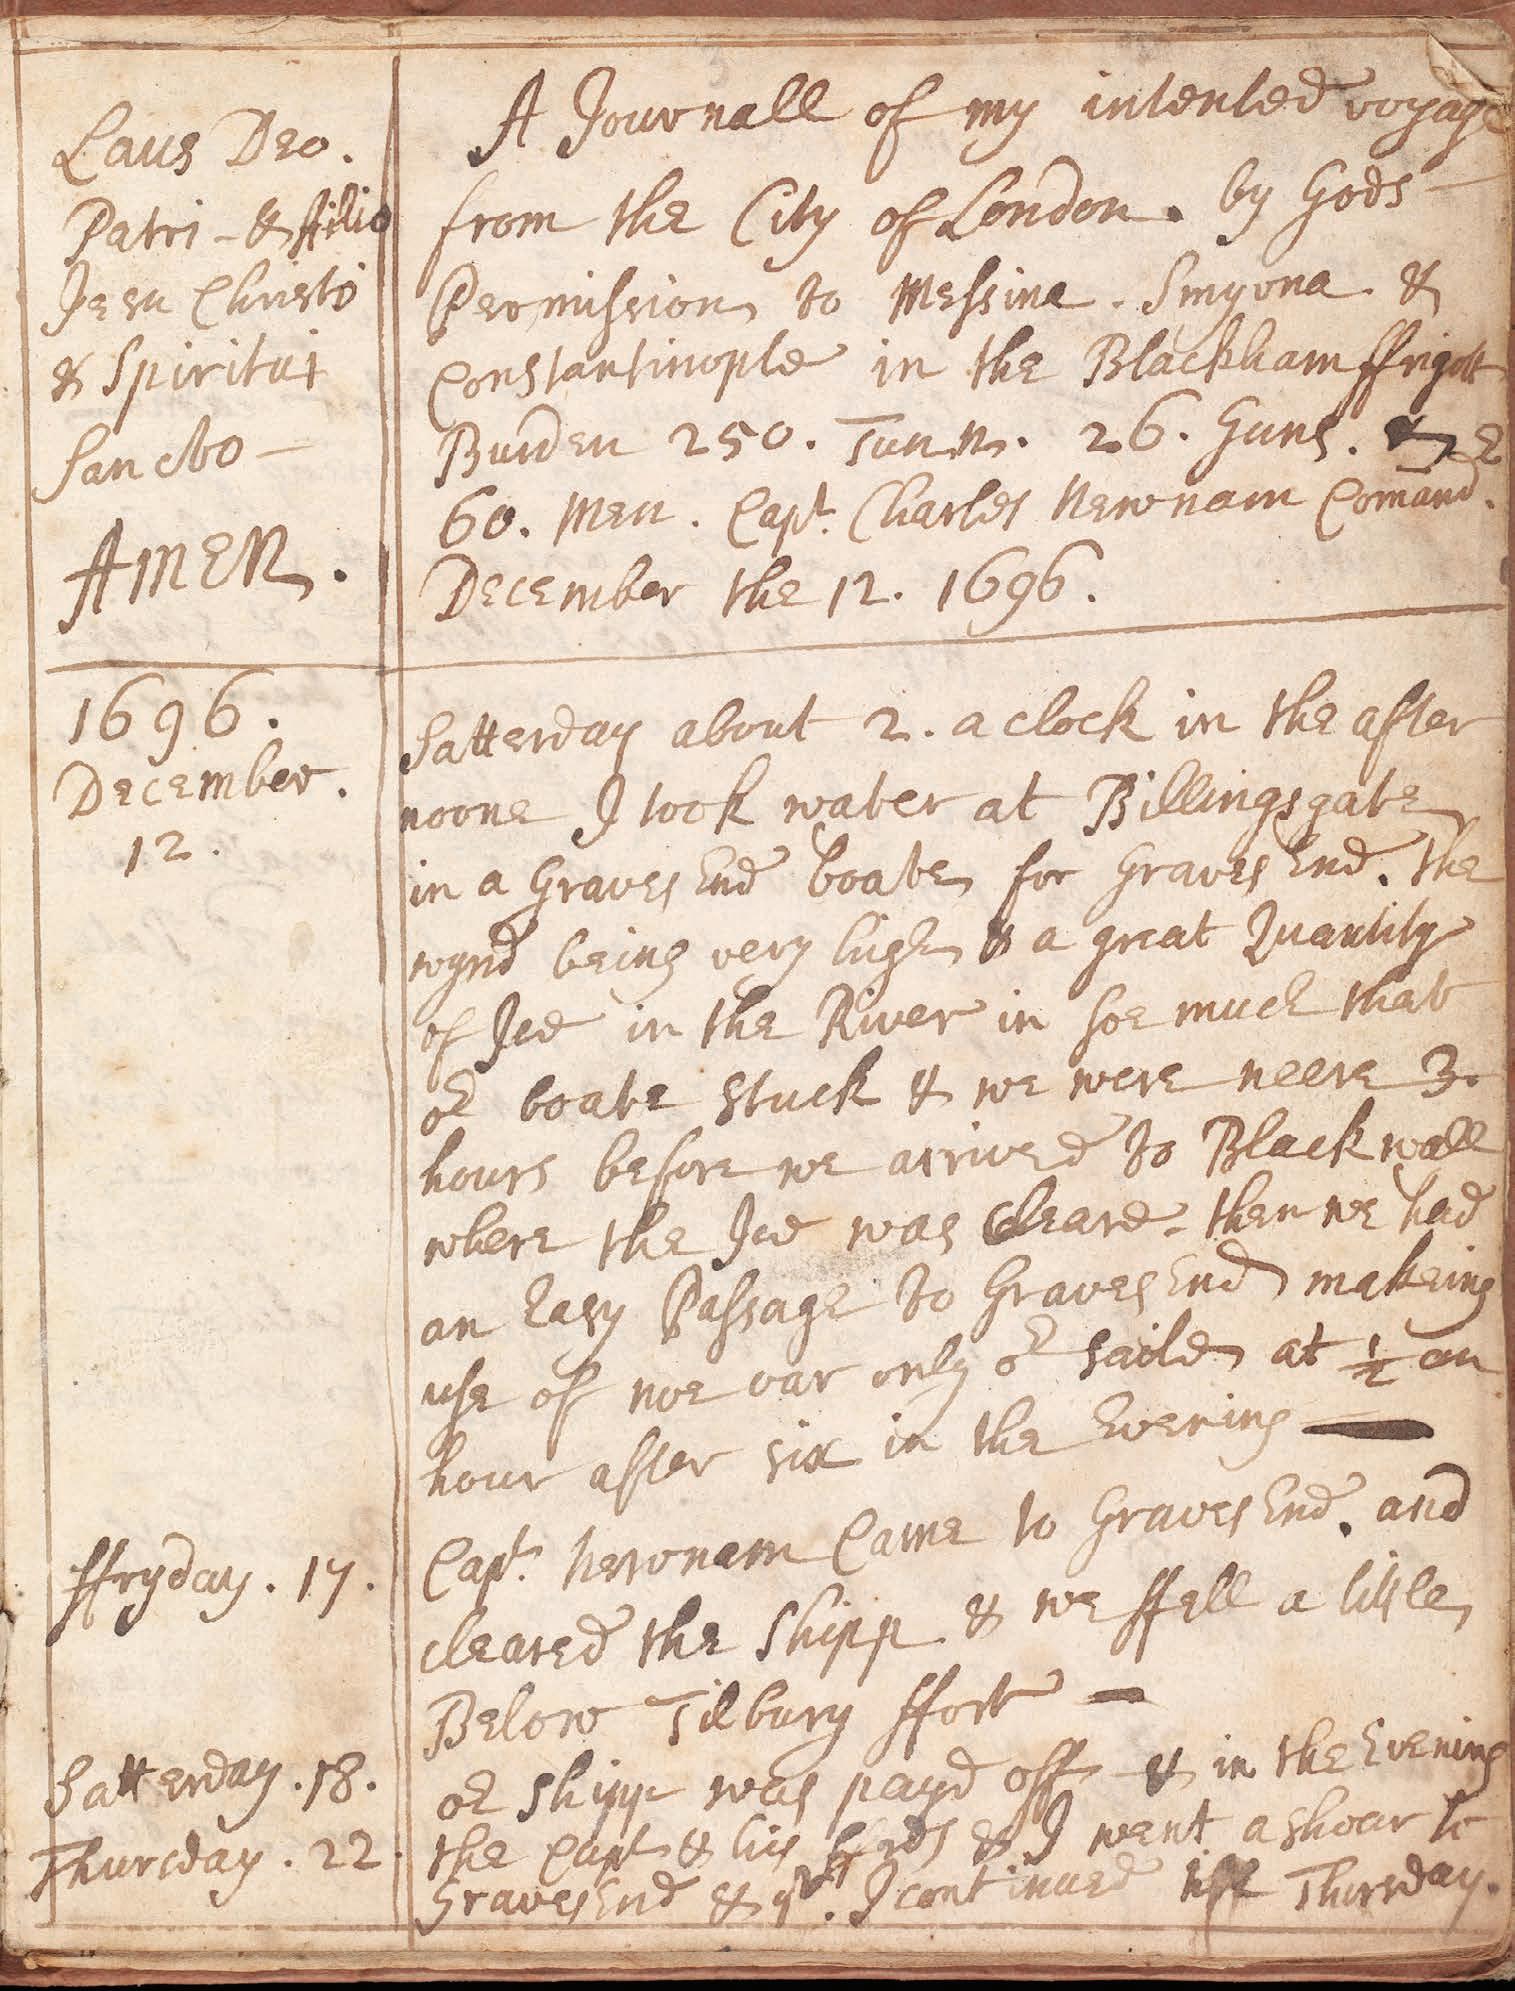 Laus Deo.
Patri - & ffilio
Jesu Christo
& Spiritui
Sancto -
AMEN.
A Journall of my intented voyage
from the City of London. by Gods -
Permission to Messina. Smyrna. &
Constantinople in the Blackham ffrigott
Burden 250. Tunn. 26. Guns. &
60. Men. Capt. Charles Newnam Comand.
December the 12. 1696.
1696.
December.
12.
Satterday about 2. a clock in the after
noone I took water at Billingsgate
in a GravesEnd boate for GravesEnd. the
wynd being very high & a great Quantity
of Ice in the River in soe much that
or boate stuck & we were neere 3.
hours before we arrived to Blackwall
where the Ice was Cleare - then we had
an Easy Passage to GravesEnd makeing
use of noe oar only or saile at ½ an
hour after six in the Evening —
ffryday. 17.
Capt. Newnam Came to GravesEnd. and
cleared the Shipp & we ffell a little
Below Tilbury ffort —
Satterday. 18.
or Shipp was payd off & in the Evening
Thursday. 22.
the Capt & his & I went a shoar to
GravesEnd & yr. I continued till Thursday.